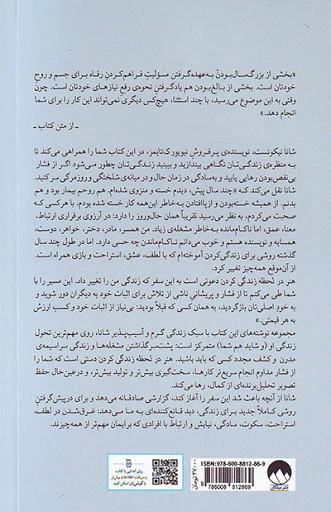 «بخشی از بزرگ‌سال‌بودن به‌عهده‌گرفتن مسؤلیتِ فراهم‌کردنِ رفاه برای جسم و روحِ
خودتان است. بخشی از بالغ‌بودن هم یادگرفتنِ نحوه‌ی رفعِ نیازهای خودتان است. چون
وقتی به این موضوع می‌رسید، با چند استثنا، هیچ‌کس دیگری نمی‌تواند این کار را برای شما
انجام دهد.»
ـ از متن کتاب ـ
شانا نیکوئست، نویسنده‌ی پرفروشِ نیویورک‌تایمز، در این کتاب شما را همراهی می‌کند تا
به منظره‌ی زندگی‌تان نگاهی بیندازید و ببینید زندگی‌تان چطور می‌شود اگر از فشار
بی‌نقص‌بودن رهایی یابید و به‌سادگی در زمان حال و در میانه‌ی شلختگی و روزمرگی سر کنید.
شانا نقل می‌کند که «چند سال پیش، دیدم خسته و منزوی شده‌ام. هم روحم بیمار بود و هم
بدنم. از همیشه خسته‌بودن و ازپاافتادن به‌خاطر این‌همه کار خسته شده بودم. با هرکسی که
صحبت می‌کردم، به نظر می‌رسید تقریباً همان حال‌وروز را دارد: در آرزوی برقراری ارتباط،
معنا، عمق، اما ناکام‌مانده به‌خاطر مشغله‌ی زیاد. من همسر، مادر، دختر، خواهر، دوست،
همسایه و نویسنده هستم و خوب می‌دانم ناکام‌ماندن چه حسی دارد. اما در طول چند سال
گذشته روشی برای زندگی‌کردن آموخته‌ام که با لطف، عشق، استراحت و بازی همراه است.
از آن‌موقع همه‌چیز تغییر کرد.
هنر در لحظه زندگی کردن دعوتی است به این سفر که زندگی من را تغییر داد. این مسیر را با
شما طی می‌کنم تا از فشار و پریشانیِ ناشی از تلاش برای اثبات خود به دیگران دور شوید و
به خودِ اصلی‌تان بازگردید، به همان کسی که قبلاً بودید: بی‌نیاز از اثبات خود و کسب ارزش
به هر قیمتی.»
مجموعه نوشته‌های این کتاب با سبک زندگی گرم و آسیب‌پذیر شانا، روی مهم‌ترین تحول
زندگی او (و شاید هم شما) متمرکز است: پشت‌سرگذاشتنِ مشغله‌ها و زندگیِ سراسیمه‌ی
مدرن و کشف مجدد کسی که باید باشید. هنر در لحظه زندگی کردن دستی است که شما را
از فشار مداوم انجام سریع‌تر کارها، سخت‌گیری بیش‌تر و تولید بیش‌تر، و درعین‌حال حفظ
تصویر تحلیل‌برنده‌ای از کمال، رها می‌کند.
شانا از آنچه باعث شد این سفر را آغاز کند، گزارشی صادقانه می‌دهد و برای درپیش‌گرفتنِ
روشی کاملاً جدید برای زندگی، دید قانع‌کننده‌ای به ما می‌دهد: غرق‌شدن در لطف،
استراحت، سکوت، سادگی، نیایش و ارتباط با افرادی که برایمان مهم‌تر از همه‌چیزند.
ISBN: 978-600-8812-86-9
9 786008 812869